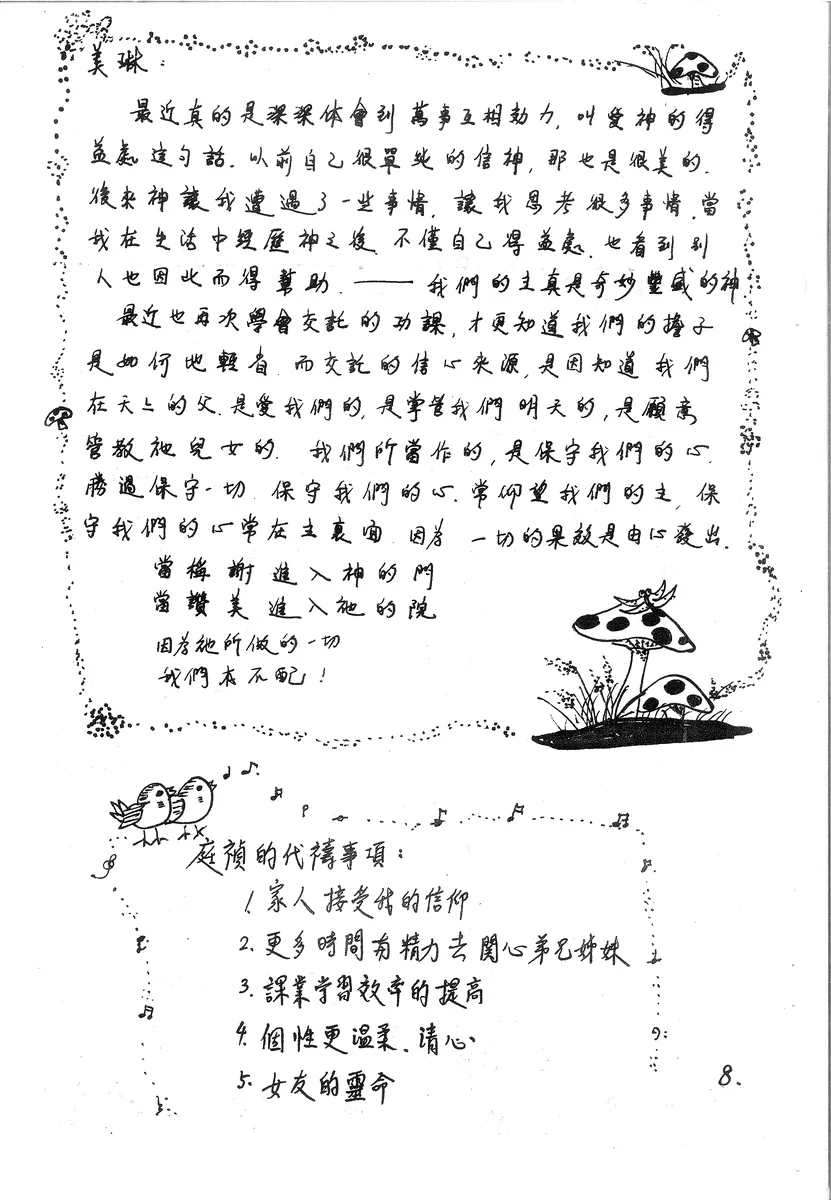 美琳：
最近真的是深深体會到萬事互相効力，叫愛神的得
益處這句話．以前自己很單純的信神，那也是很美的．
後來神讓我遭遇了一些事情，讓我思考很多事情．當
我在生活中經歷神之後．不僅自己得益處．也看到別
人也因此而得幫助．——我們的主真是奇妙豐盛的神
最近也再次學會交託的功課，才更知道我們的擔子
是如何地輕省．而交託的信心來源，是因知道我們
在天上的父．是愛我們的，是掌管我們明天的，是願意
管教祂兒女的．我們所當作的，是保守我們的心．
勝過保守一切．保守我們的心．常仰望我們的主，保
守我們的心常在主裏面．因為一切的果效是由心發出．
當稱謝進入神的門
當讚美進入祂的院
因為祂所做的一切
我們本不配！
庭禎的代禱事項：
1. 家人接受我的信仰
2. 更多時間有精力去関心弟兄姊妹
3. 課業学習效率的提高
4. 個性更溫柔．清心
5. 女友的靈命
8.